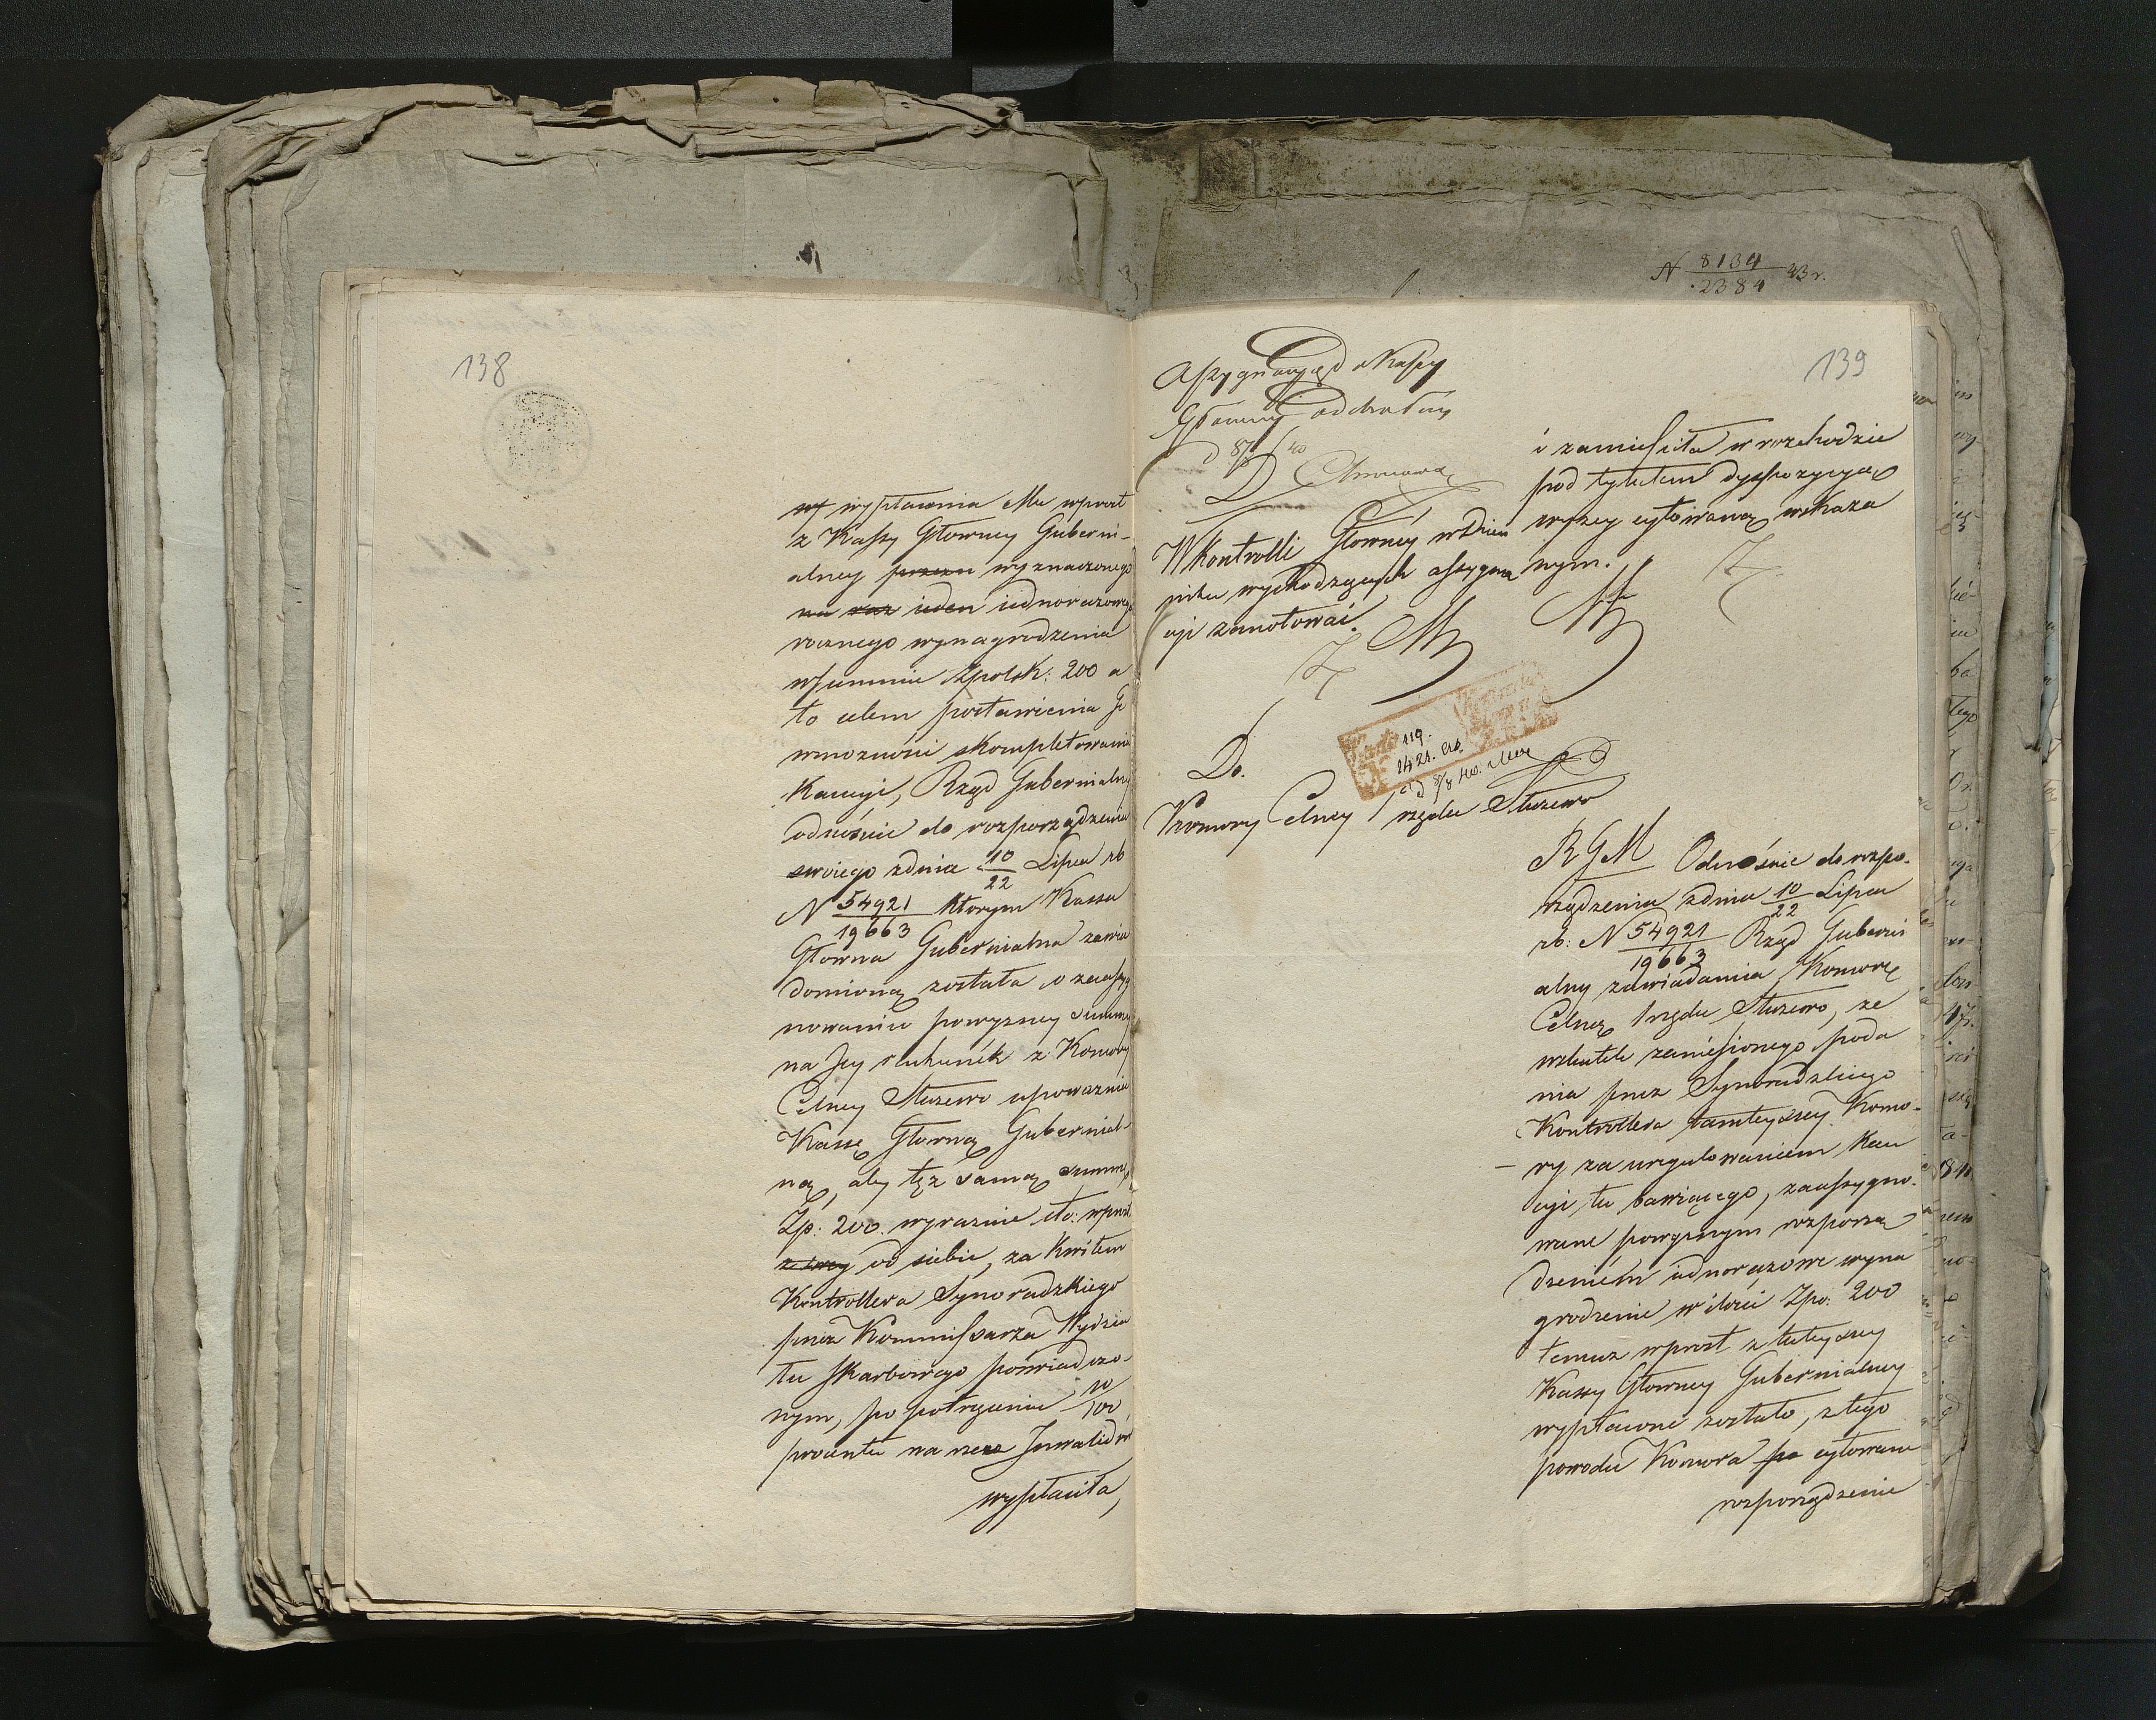 138
wypłacenia Mu wprost
z Kassy Głowney Guberni-
alney przezn wyznaczonego
na raz ieden iednorazowego
rocznego wynagrodzenia
w summie Zpolsk: 200 a
to celem postawienia Go
w mozności skompletowania
Kaucyi, Rząd Gubernialny
odnośnie do rozporządzenia
swoiego z dnia 10/22 Lipca rb
N 54921/19663 ktorym Kassa
Głowna Gubernialna zawia
domioną została o zaassyg
nowaniu powyzszey summy
na Jey rachunek z Komory
Celney Słuzewo upowaznia
Kassę Głowną Gubernial-
ną, aby tęż samą summę
Zp: 200. wyraznie dto: wprost
ze swey od siebie, za Kwitem
Kontrollera Synoradzkiego
przez Kommissarza Wydzia
łu Skarbowego poświadczo-
nym, po potrąceniu 10/100
procentu na rzecz Inwalidów
wypłaciła,
N 8134/2384 43 r.
139
Assygnacyą d Kassy
Głowney odebrałem
d 8/8 40
W Kontrolli Głowney w Dzien
niku wychodzących assygna
cyi zanotować.
i zamieściła w rozchodzie
pod tytułem dyspozycyą
wyzey cytowaną wskaza
nym.
119.
d 8/8 40.
Do.
Komory Celney 1 rzędu Słuzewo
RGM Odnośnie do rozpo-
rządzenia z dnia 10/22 Lipca
rb: N 54921/19663 Rząd Guberni
alny zawiadamia Komorę
Celną 1 rzędu Słuzewo, ze
wskutek zaniesionego poda
nia przez Synoradzkiego
Kontrollera tamteyszey Komo-
ry za uregulowaniem Kau
cyi tu bawiącego, zaassygno-
wane powyzszym rozporzą
dzeniem iednorazowe wyna
grodzenie w ilości Zpo: 200
temuz wprost z tuteyszey
Kassy Głowney Gubernialney
wypłacone zostało, z tego
powodu Komora po cytowane
rozporządzenie